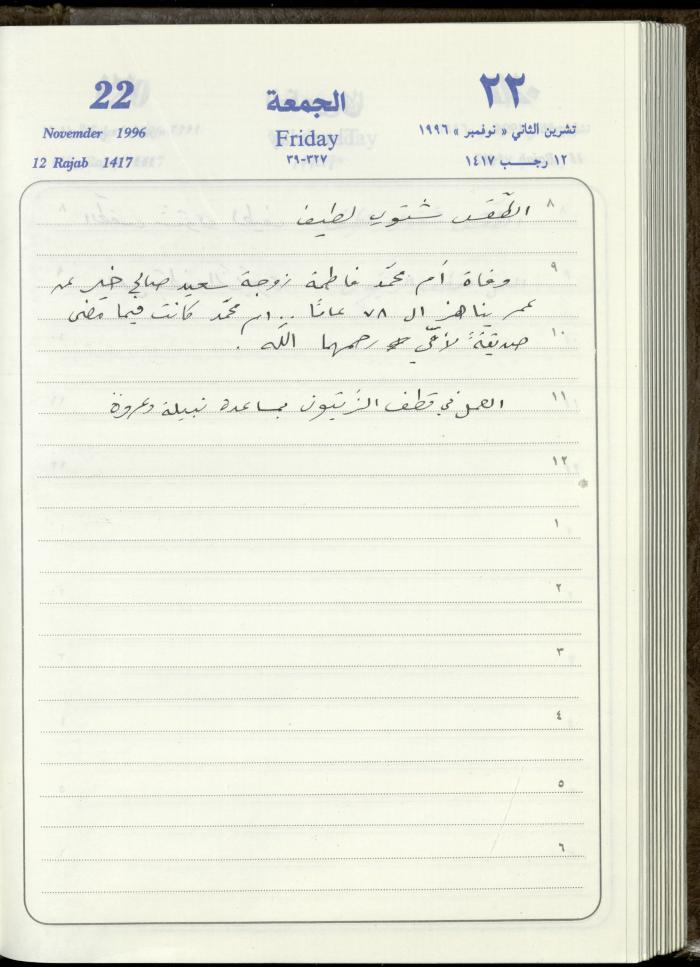 22
الجمعة
٢٢
Novemder 1996
Friday
تشرين الثاني « نوفمبر » ١٩٩٦
12 Rajab 1417
٣٩-٣٢٧
١٢ رجب ١٤١٧
٨ الطّقس شتوي لطيف
٩ وفاة أم محمّد فاطمة زوجة سعيد صالح خير عن
عمر يناهز ال ٧٨ عامًا .. ام محمّد كانت فيما مضى
١٠ صديقةً لأمّي رحمهما اللّه .
١١ العمل في قطف الزّيتون بمساعدة نبيلة وعروة
١٢
١
٢
٣
٤
٥
٦